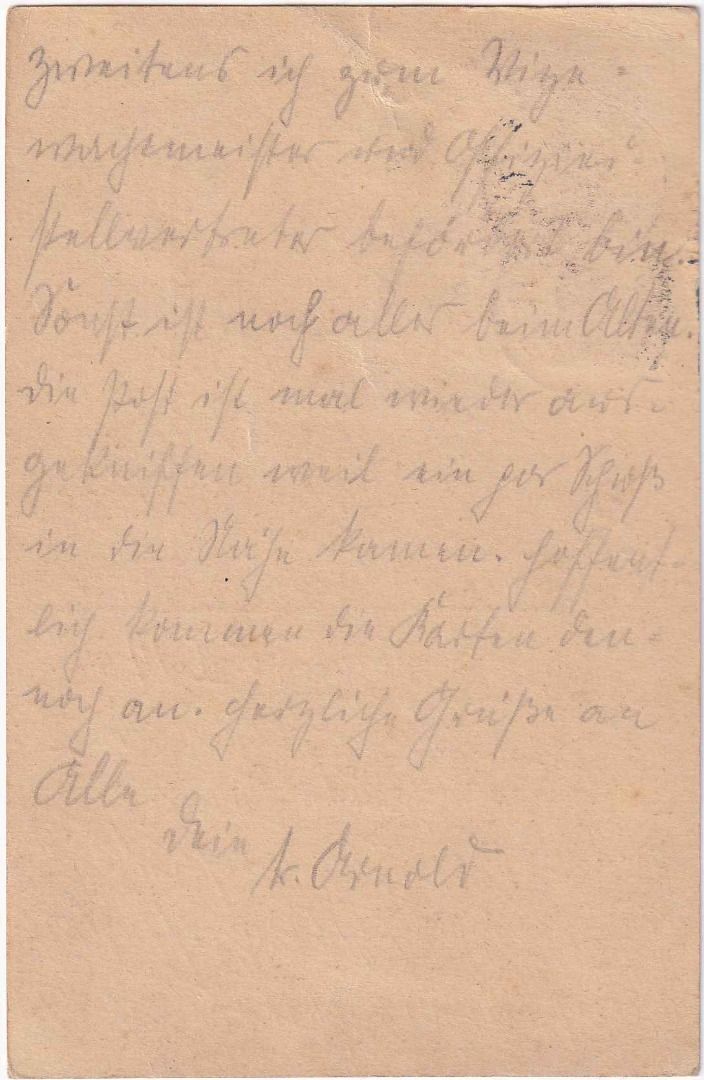 zweitens ich zum Vize-
wachtmeister und Offizier-
stellvertreter befördert bin.
Sonst ist noch alles beim Alten.
Die Post ist mal wieder aus-
gekniffen weil ein par Schuß
in die Nähe kamen. Hoffent-
lich kommen die Karten den-
noch an. Herzliche Grüße an
Alle
Dein
tr. Arnold